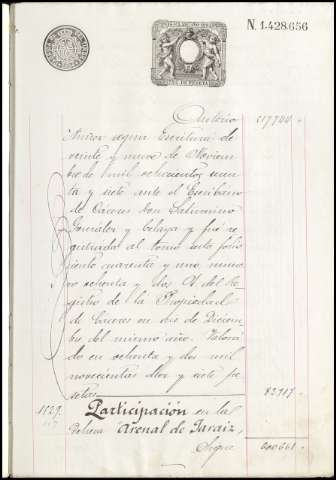 N. 1.428.656
Antonio 117700
Amzor segun Escritura de
veinte y nueve de Noviem
bre de mil ochocientos
ta y siete ante el Escribano
de Cáceres Don Saturnino
Gonzalez y Celaya y fue re
gistrada al tomo folio
ciento cuarenta y uno nume
ro ochenta y dos del Re
gistro de la Propiedad
de Cáceres en dos de Diciem
bre del mismo año. Valora
do en ochenta y dos mil
novecientas diez y siete pe
setas 82917
1129. Participación en la
Dehesa Arenal de Jaraiz,
Sigue